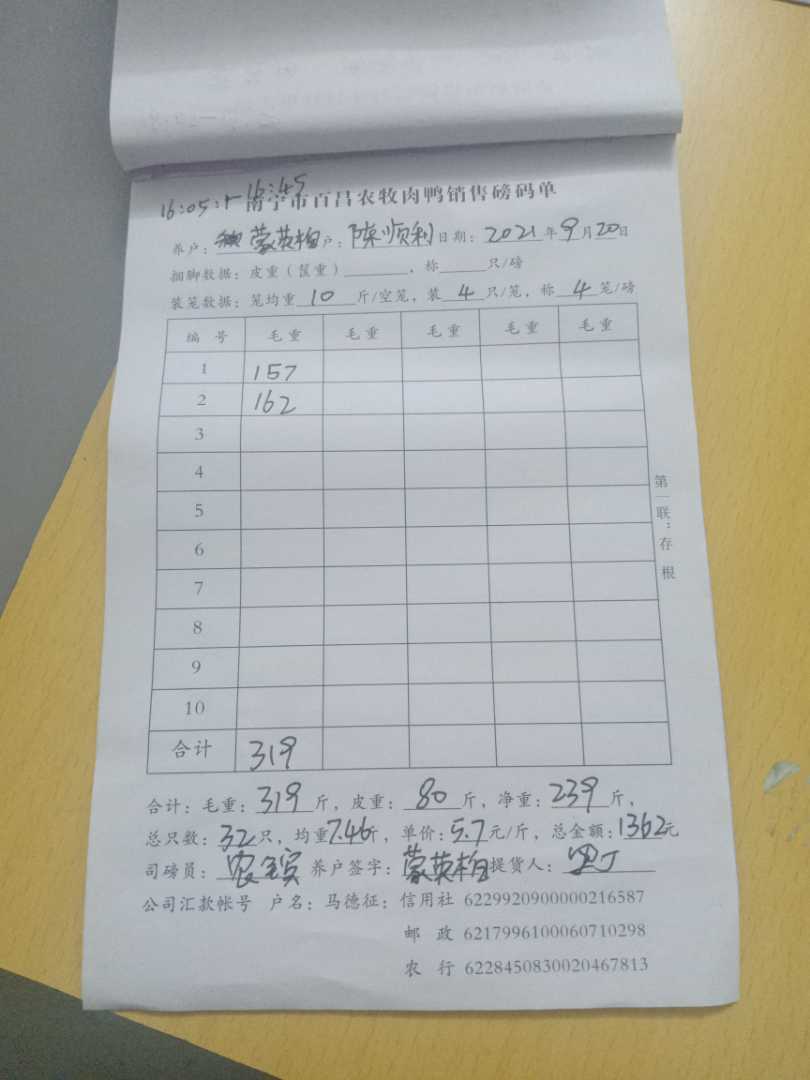 16:05:1-16:45
南宁市百昌农牧肉鸭销售磅码单
养户: 蒙英柏 户: 陈顺利 日期: 2021 年 9 月 20 日
捆脚数据: 皮重(筐重)________, 称_____只/磅
装笼数据: 笼均重 10 斤/空笼, 装 4 只/笼, 称 4 笼/磅
编 号 毛 重 毛 重 毛 重 毛 重 毛 重
1 157
2 162
3
4
5
6
7
8
9
10
合计 319
第一联: 存根
合计: 毛重: 319 斤, 皮重: 80 斤, 净重: 239 斤,
总只数: 32 只, 均重 7.46 斤, 单价: 5.7 元/斤, 总金额: 1362 元
司磅员: 养户签字: 蒙英柏 提货人:
公司汇款帐号 户名: 马德征: 信用社 6229920900000216587
邮 政 6217996100060710298
农 行 6228450830020467813